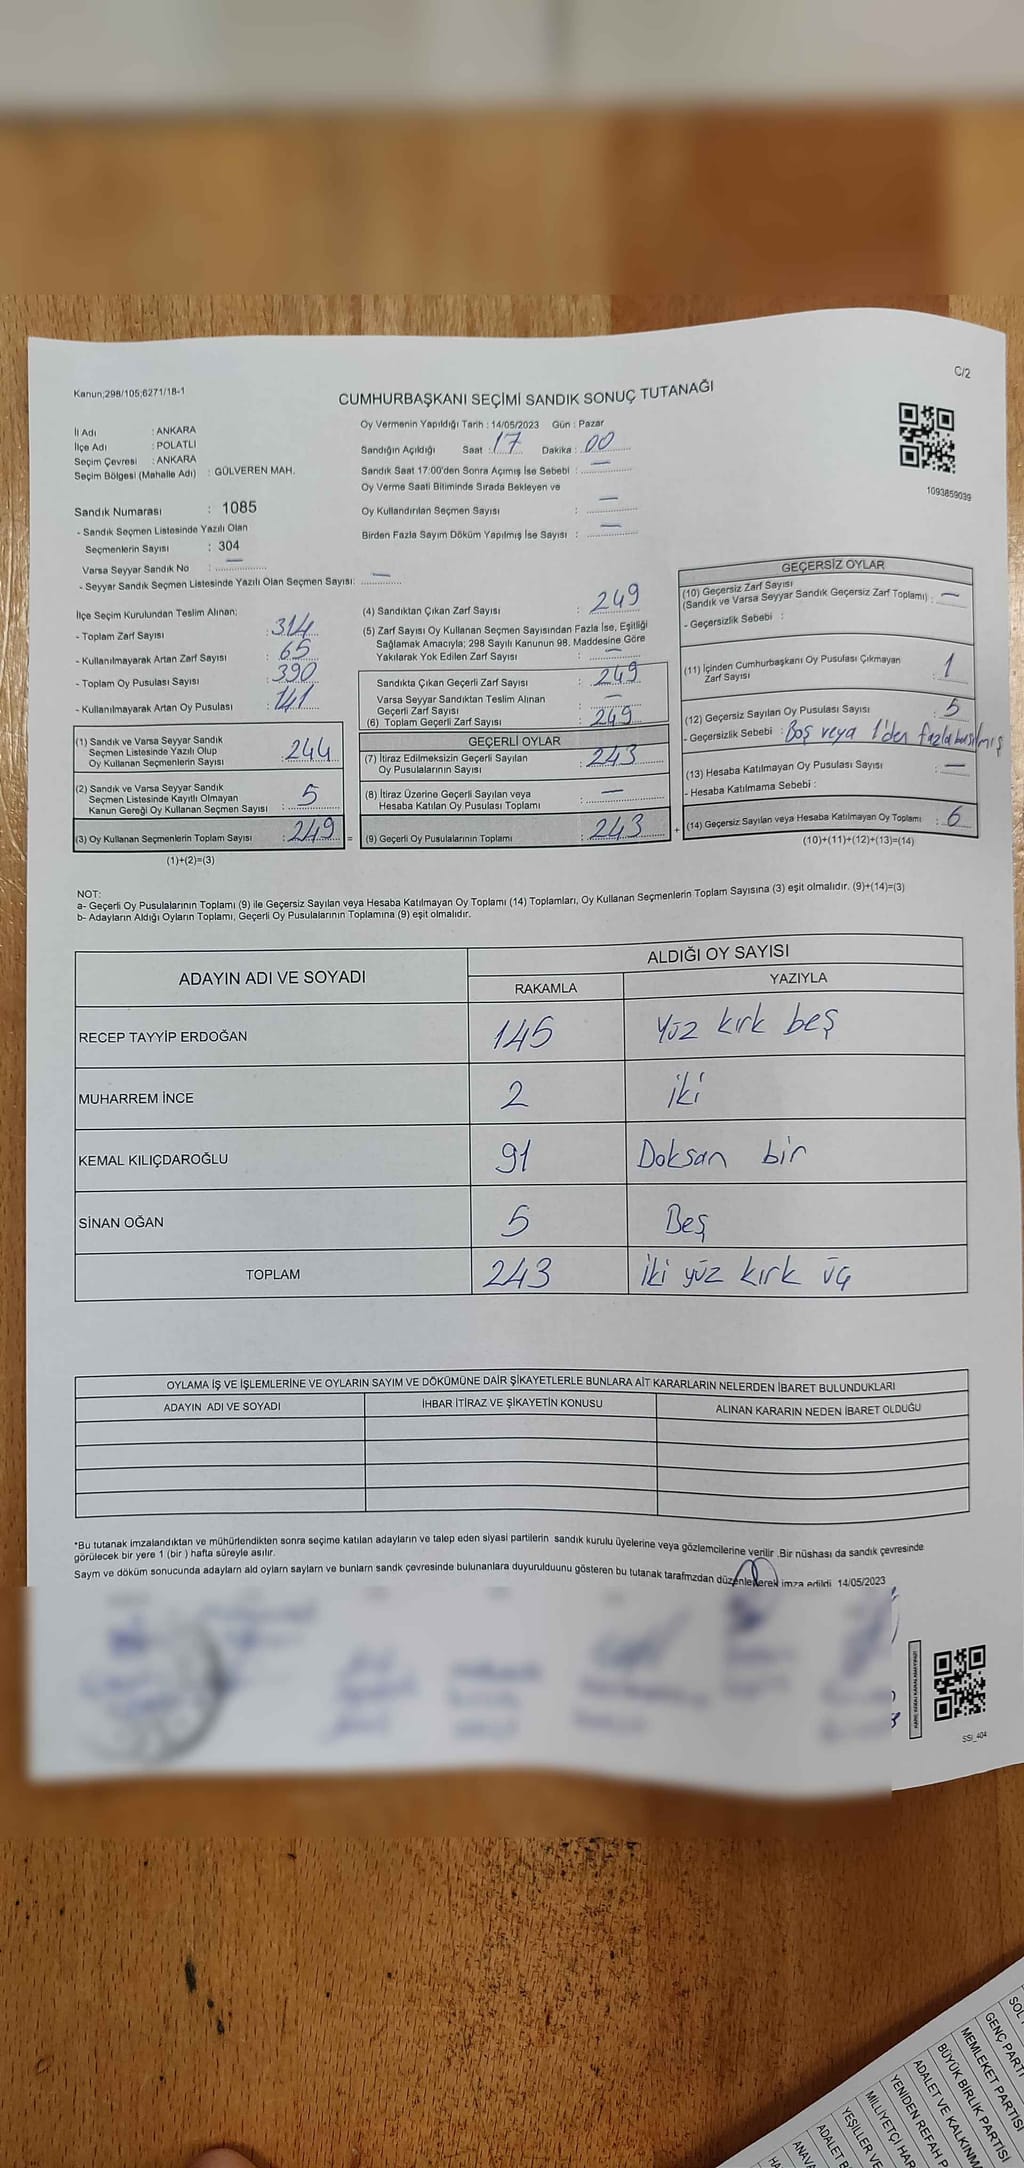 Kanun;298/105;6271/18-1
C/2
CUMHURBAŞKANI SEÇİMİ SANDIK SONUÇ TUTANAĞI
İl Adı : ANKARA
İlçe Adı : POLATLI
Seçim Çevresi : ANKARA
Seçim Bölgesi (Mahalle Adı) : GÜLVEREN MAH.
Oy Vermenin Yapıldığı Tarih : 14/05/2023 Gün : Pazar
Sandığın Açıldığı Saat : 17 Dakika : 00
Sandık Saat 17:00'den Sonra Açımış İse Sebebi : —
Oy Verme Saati Bitiminde Sırada Bekleyen ve
Oy Kullandırılan Seçmen Sayısı : —
Birden Fazla Sayım Döküm Yapılmış İse Sayısı : —
1093859039
Sandık Numarası : 1085
- Sandık Seçmen Listesinde Yazılı Olan
Seçmenlerin Sayısı : 304
Varsa Seyyar Sandık No : —
- Seyyar Sandık Seçmen Listesinde Yazılı Olan Seçmen Sayısı: —
İlçe Seçim Kurulundan Teslim Alınan:
- Toplam Zarf Sayısı : 314
- Kullanılmayarak Artan Zarf Sayısı : 65
- Toplam Oy Pusulası Sayısı : 390
- Kullanılmayarak Artan Oy Pusulası : 141
(1) Sandık ve Varsa Seyyar Sandık
Seçmen Listesinde Yazılı Olup
Oy Kullanan Seçmenlerin Sayısı : 244
(2) Sandık ve Varsa Seyyar Sandık
Seçmen Listesinde Kayıtlı Olmayan
Kanun Gereği Oy Kullanan Seçmen Sayısı : 5
(3) Oy Kullanan Seçmenlerin Toplam Sayısı : 249 =
(1)+(2)=(3)
(4) Sandıktan Çıkan Zarf Sayısı : 249
(5) Zarf Sayısı Oy Kullanan Seçmen Sayısından Fazla İse, Eşitliği
Sağlamak Amacıyla; 298 Sayılı Kanunun 98. Maddesine Göre
Yakılarak Yok Edilen Zarf Sayısı : —
Sandıkta Çıkan Geçerli Zarf Sayısı : 249
Varsa Seyyar Sandıktan Teslim Alınan
Geçerli Zarf Sayısı : —
(6) Toplam Geçerli Zarf Sayısı : 249
GEÇERLİ OYLAR
(7) İtiraz Edilmeksizin Geçerli Sayılan
Oy Pusulalarının Sayısı : 243
(8) İtiraz Üzerine Geçerli Sayılan veya
Hesaba Katılan Oy Pusulası Toplamı : —
(9) Geçerli Oy Pusulalarının Toplamı : 243 +
GEÇERSİZ OYLAR
(10) Geçersiz Zarf Sayısı
(Sandık ve Varsa Seyyar Sandık Geçersiz Zarf Toplamı) : —
- Geçersizlik Sebebi :
(11) İçinden Cumhurbaşkanı Oy Pusulası Çıkmayan
Zarf Sayısı : 1
(12) Geçersiz Sayılan Oy Pusulası Sayısı : 5
- Geçersizlik Sebebi : Boş veya 1'den fazla basılmış
(13) Hesaba Katılmayan Oy Pusulası Sayısı : —
- Hesaba Katılmama Sebebi :
(14) Geçersiz Sayılan veya Hesaba Katılmayan Oy Toplamı : 6
(10)+(11)+(12)+(13)=(14)
NOT:
a- Geçerli Oy Pusulalarının Toplamı (9) ile Geçersiz Sayılan veya Hesaba Katılmayan Oy Toplamı (14) Toplamları, Oy Kullanan Seçmenlerin Toplam Sayısına (3) eşit olmalıdır. (9)+(14)=(3)
b- Adayların Aldığı Oyların Toplamı, Geçerli Oy Pusulalarının Toplamına (9) eşit olmalıdır.
ADAYIN ADI VE SOYADI
ALDIĞI OY SAYISI
RAKAMLA YAZIYLA
RECEP TAYYİP ERDOĞAN 145 Yüz kırk beş
MUHARREM İNCE 2 iki
KEMAL KILIÇDAROĞLU 91 Doksan bir
SİNAN OĞAN 5 Beş
TOPLAM 243 iki yüz kırk üç
OYLAMA İŞ VE İŞLEMLERİNE VE OYLARIN SAYIM VE DÖKÜMÜNE DAİR ŞİKAYETLERLE BUNLARA AİT KARARLARIN NELERDEN İBARET BULUNDUKLARI
ADAYIN ADI VE SOYADI İHBAR İTİRAZ VE ŞİKAYETİN KONUSU ALINAN KARARIN NEDEN İBARET OLDUĞU
*Bu tutanak imzalandıktan ve mühürlendikten sonra seçime katılan adayların ve talep eden siyasi partilerin sandık kurulu üyelerine veya gözlemcilerine verilir .Bir nüshası da sandık çevresinde
görülecek bir yere 1 (bir ) hafta süreyle asılır.
Saym ve döküm sonucunda adaylarn ald oylarn saylarn ve bunlarn sandk çevresinde bulunanlara duyurulduunu gösteren bu tutanak tarafmzdan düzenlenerek imza edildi 14/05/2023
SSİ_404
SOL
GENÇ PARTİ
MEMLEKET PARTİSİ
BÜYÜK BİRLİK PARTİSİ
ADALET VE KALKINMA
YENİDEN REFAH P
MİLLİYETÇİ HAR
YEŞİLLER VE
ADALET B
ANAVA
HA